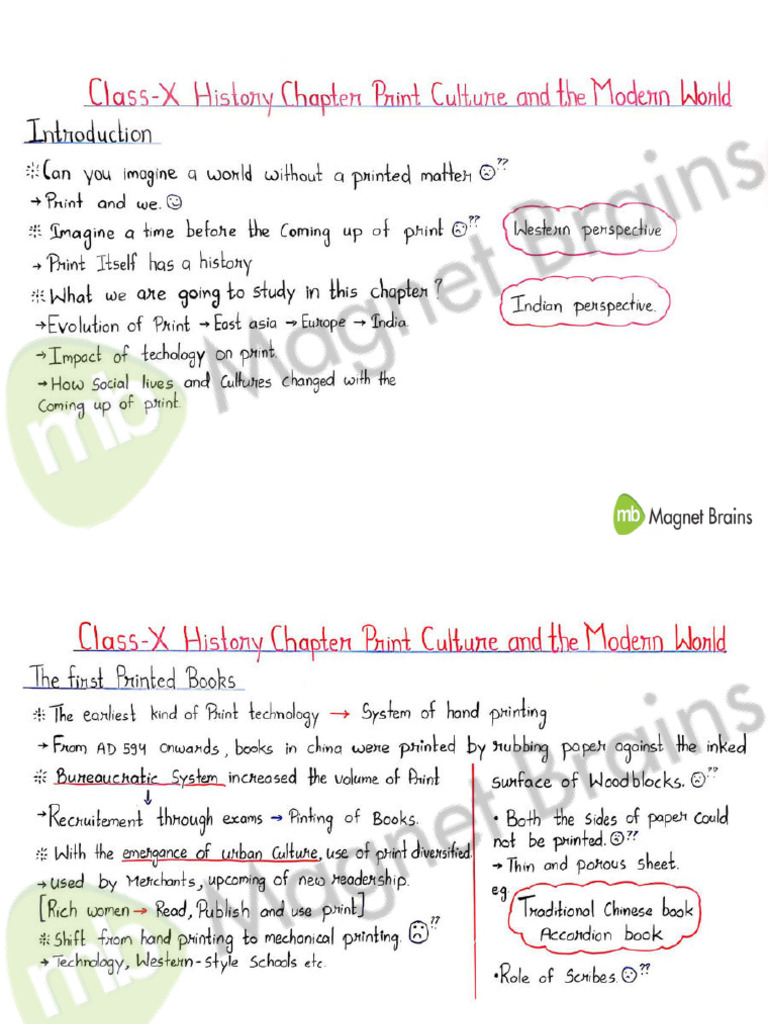 Class-X History Chapter Print Culture and the Modern World
Introduction
※ Can you imagine a world without a printed matter ☹??
→ Print and we. ☺
※ Imagine a time before the Coming up of print ☹??
→ Print Itself has a history
※ What we are going to study in this chapter?
→ Evolution of Print → East asia → Europe → India.
→ Impact of techology on print.
→ How Social lives and Cultures changed with the
Coming up of print.
Western perspective
Indian perspective.
mb Magnet Brains
mb Magnet Brains
Class-X History Chapter Print Culture and the Modern World
The first Printed Books
※ The earliest kind of Print technology → System of hand printing
→ From AD 594 onwards, books in china were printed by rubbing paper against the inked
surface of Woodblocks. ☹??
※ Bureaucratic System increased the volume of Print
↓
→ Recruitement through exams → Pinting of Books.
※ With the emergance of urban Culture, use of print diversified.
→ used by Merchants, upcoming of new readership.
[Rich women → Read, Publish and use print]
※ Shift from hand printing to mechanical printing. ☹??
→ Technology, Western-Style Schools etc.
• Both the sides of paper could
not be printed. ☹??
→ Thin and porous sheet.
eg.
Traditional Chinese book
Accordion book
• Role of Scribes. ☹??
mb Magnet Brains